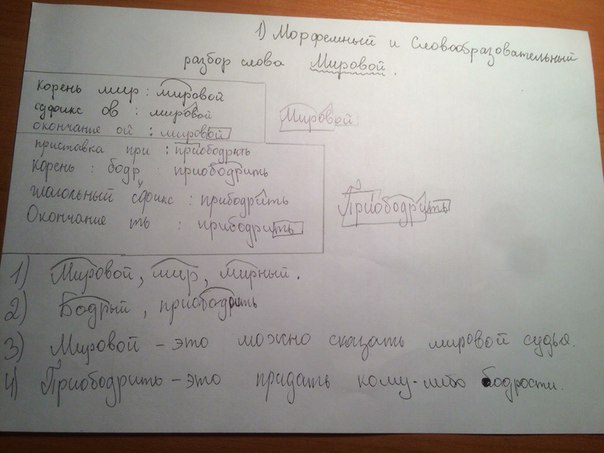 1) Морфемный и Словообразовательный
разбор слова Мировой.
корень мир : мировой
суффикс ов : мировой
окончание ой : мировой
Мировой
приставка при : приободрить
корень : бодр : приободрить
глагольный сфикс : приободрить
Окончание ть : приободрить
Приободрить
1) Мировой, мир, мирный.
2) Бодрый, приободрить
3) Мировой - это можно сказать мировой судья.
4) Приободрить - это придать кому-либо бодрости.